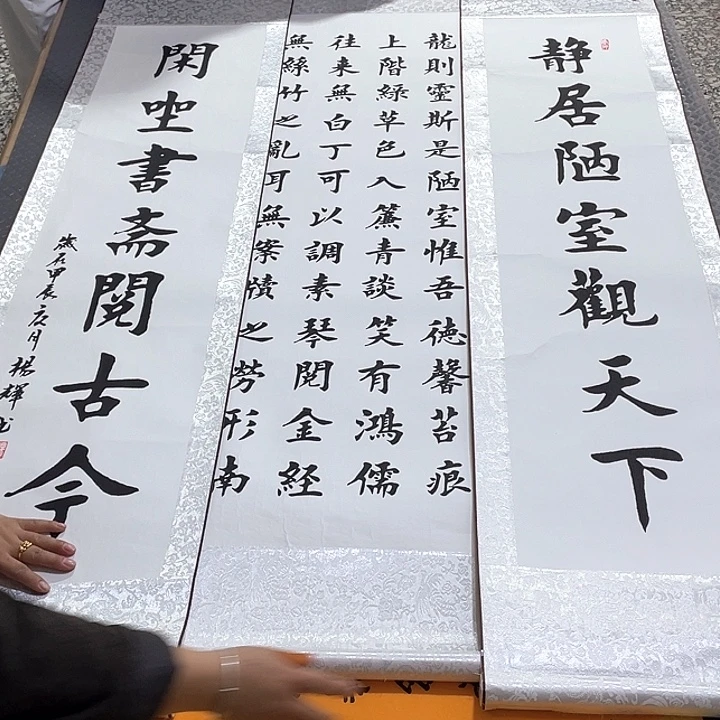 静居陋室觀天下
龍則靈斯是陋室惟吾德馨苔痕
上階綠草色入簾青談笑有鴻儒
往来無白丁可以調素琴閱金経
無絲竹之亂耳無案牘之勞形南
閑坐書斋閱古今
歲在甲辰夏月楊輝书